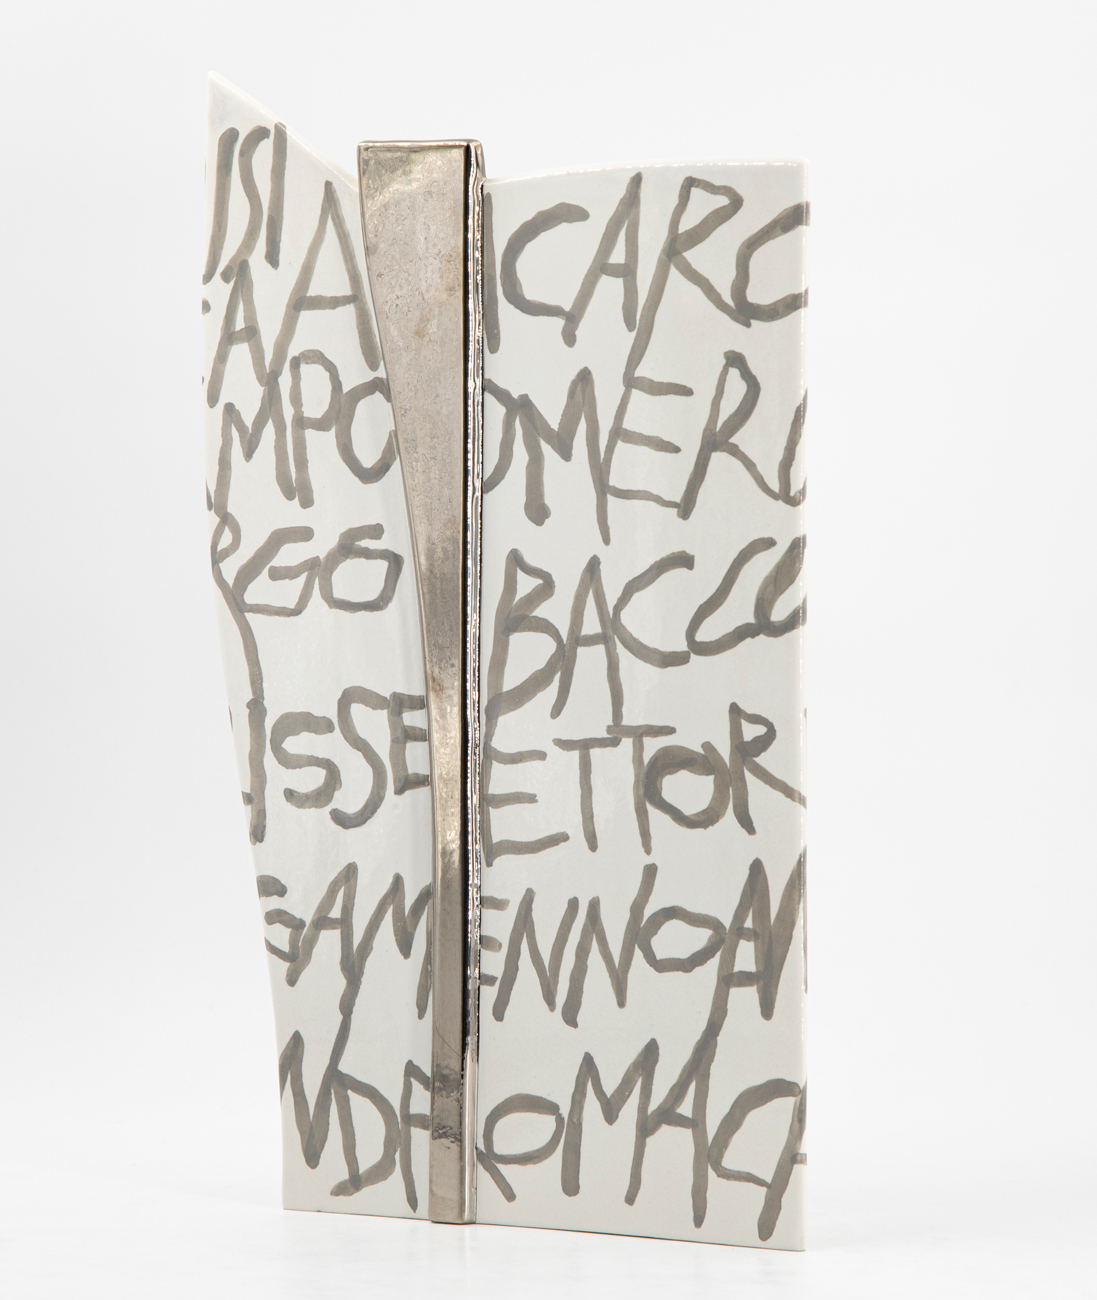 ISI A ICARO
EA
MPO OMERO
RGO BACCO
ISSE ETTOR
GAMENNON
NDROMACH